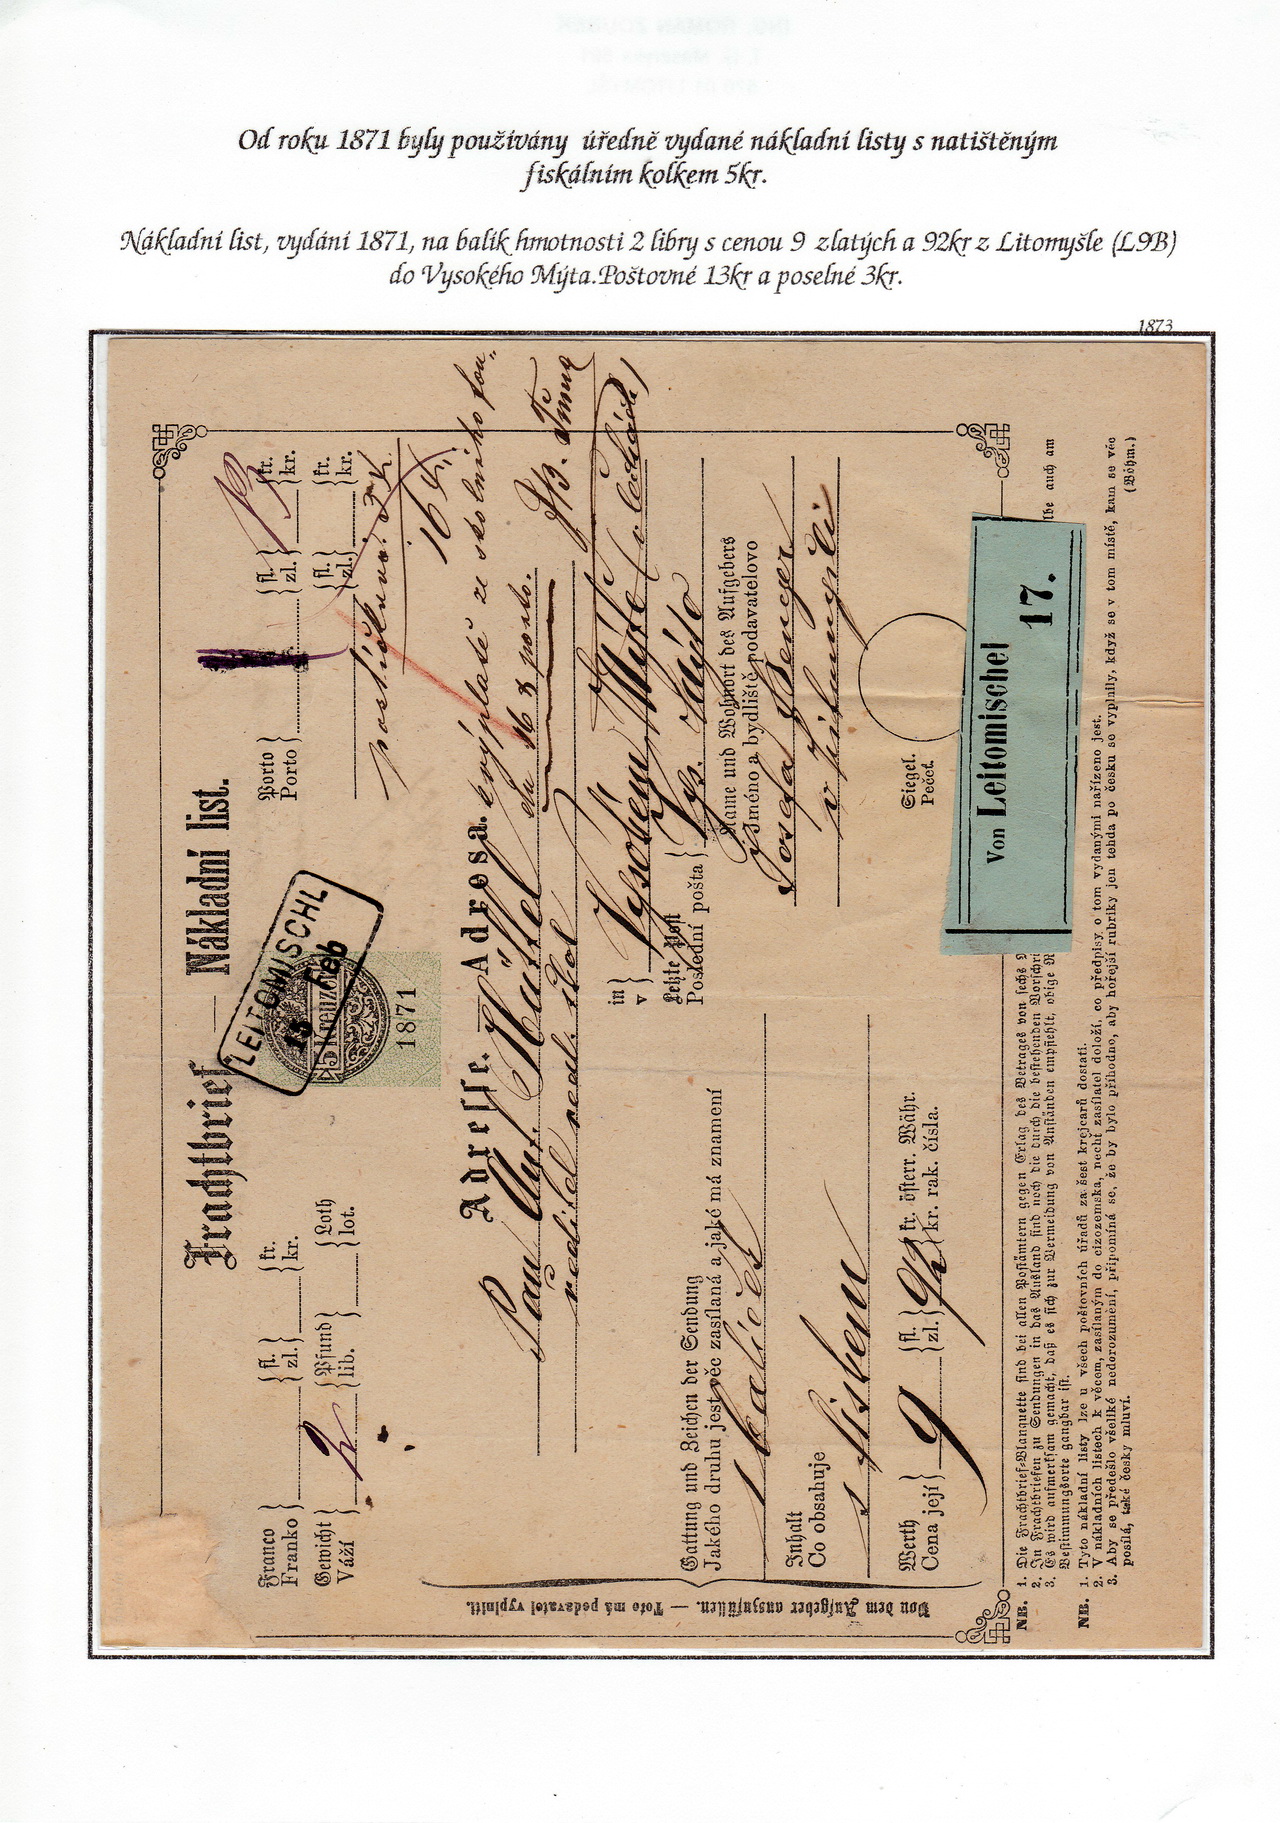 Od roku 1871 byly používány úředně vydané nákladní listy s natištěným
fiskálním kolkem 5kr.
Nákladní list, vydání 1871, na balík hmotnosti 2 libry s cenou 9 zlatých a 92kr z Litomyšle (L9B)
do Vysokého Mýta.Poštovné 13kr a poselné 3kr.
1873
Frachtbrief. — Nákladní list.
LEITOMISCHL
13 Feb
5 Kreuzer
1871
Franco
Franko
fl.
zl.
kr.
kr.
Porto
Porto
fl.
zl.
13
kr.
kr.
Gewicht
Váží
2
Pfund
lib.
Loth
lot.
fl.
zl.
kr.
kr.
16
Adresse. — Adresa.
Pan Ant.
ředitel
in
v
Vysokém Mýtě
Letzte Post
Poslední pošta
Vys. Mýto
Gattung und Zeichen der Sendung
Jakého druhu jest věc zasílaná a jaké má znamení
1 balíček
Inhalt
Co obsahuje
Name und Wohnort des Aufgebers
Jméno a bydliště podavatelovo
Josefa
v Litomyšli
Werth
Cena její
9
fl.
zl.
92
kr. österr. Währ.
kr. rak. čísla.
Siegel.
Pečeť.
Von Leitomischel
17.
Von dem Aufgeber auszufüllen. — Toto má podavatel vyplniti.
NB. 1. Die Frachtbrief-Blanquette sind bei allen Postämtern gegen Erlag des Betrages von sechs
2. Zu Frachtbriefen zu Sendungen in das Ausland sind noch die durch die bestehenden Vorschri
3. Es wird aufmerksam gemacht, daß es sich zur Vermeidung von Anständen empfiehlt, obige
lbe auch am
Bestimmungsorte gangbar ist.
NB. 1. Tyto nákladní listy lze u všech poštovních úřadů za šest krejcarů dostati.
2. V nákladních listech k věcem, zasílaným do cizozemska, nechť zasílatel doloží, co předpisy o tom vydanými nařízeno jest.
3. Aby se předešlo všeliké nedorozumění, připomíná se, že by bylo příhodno, aby hořejší rubriky jen tehda po česku se vyplnily, když se v tom místě, kam se věc
posílá, také česky mluví.
(Böhm.)